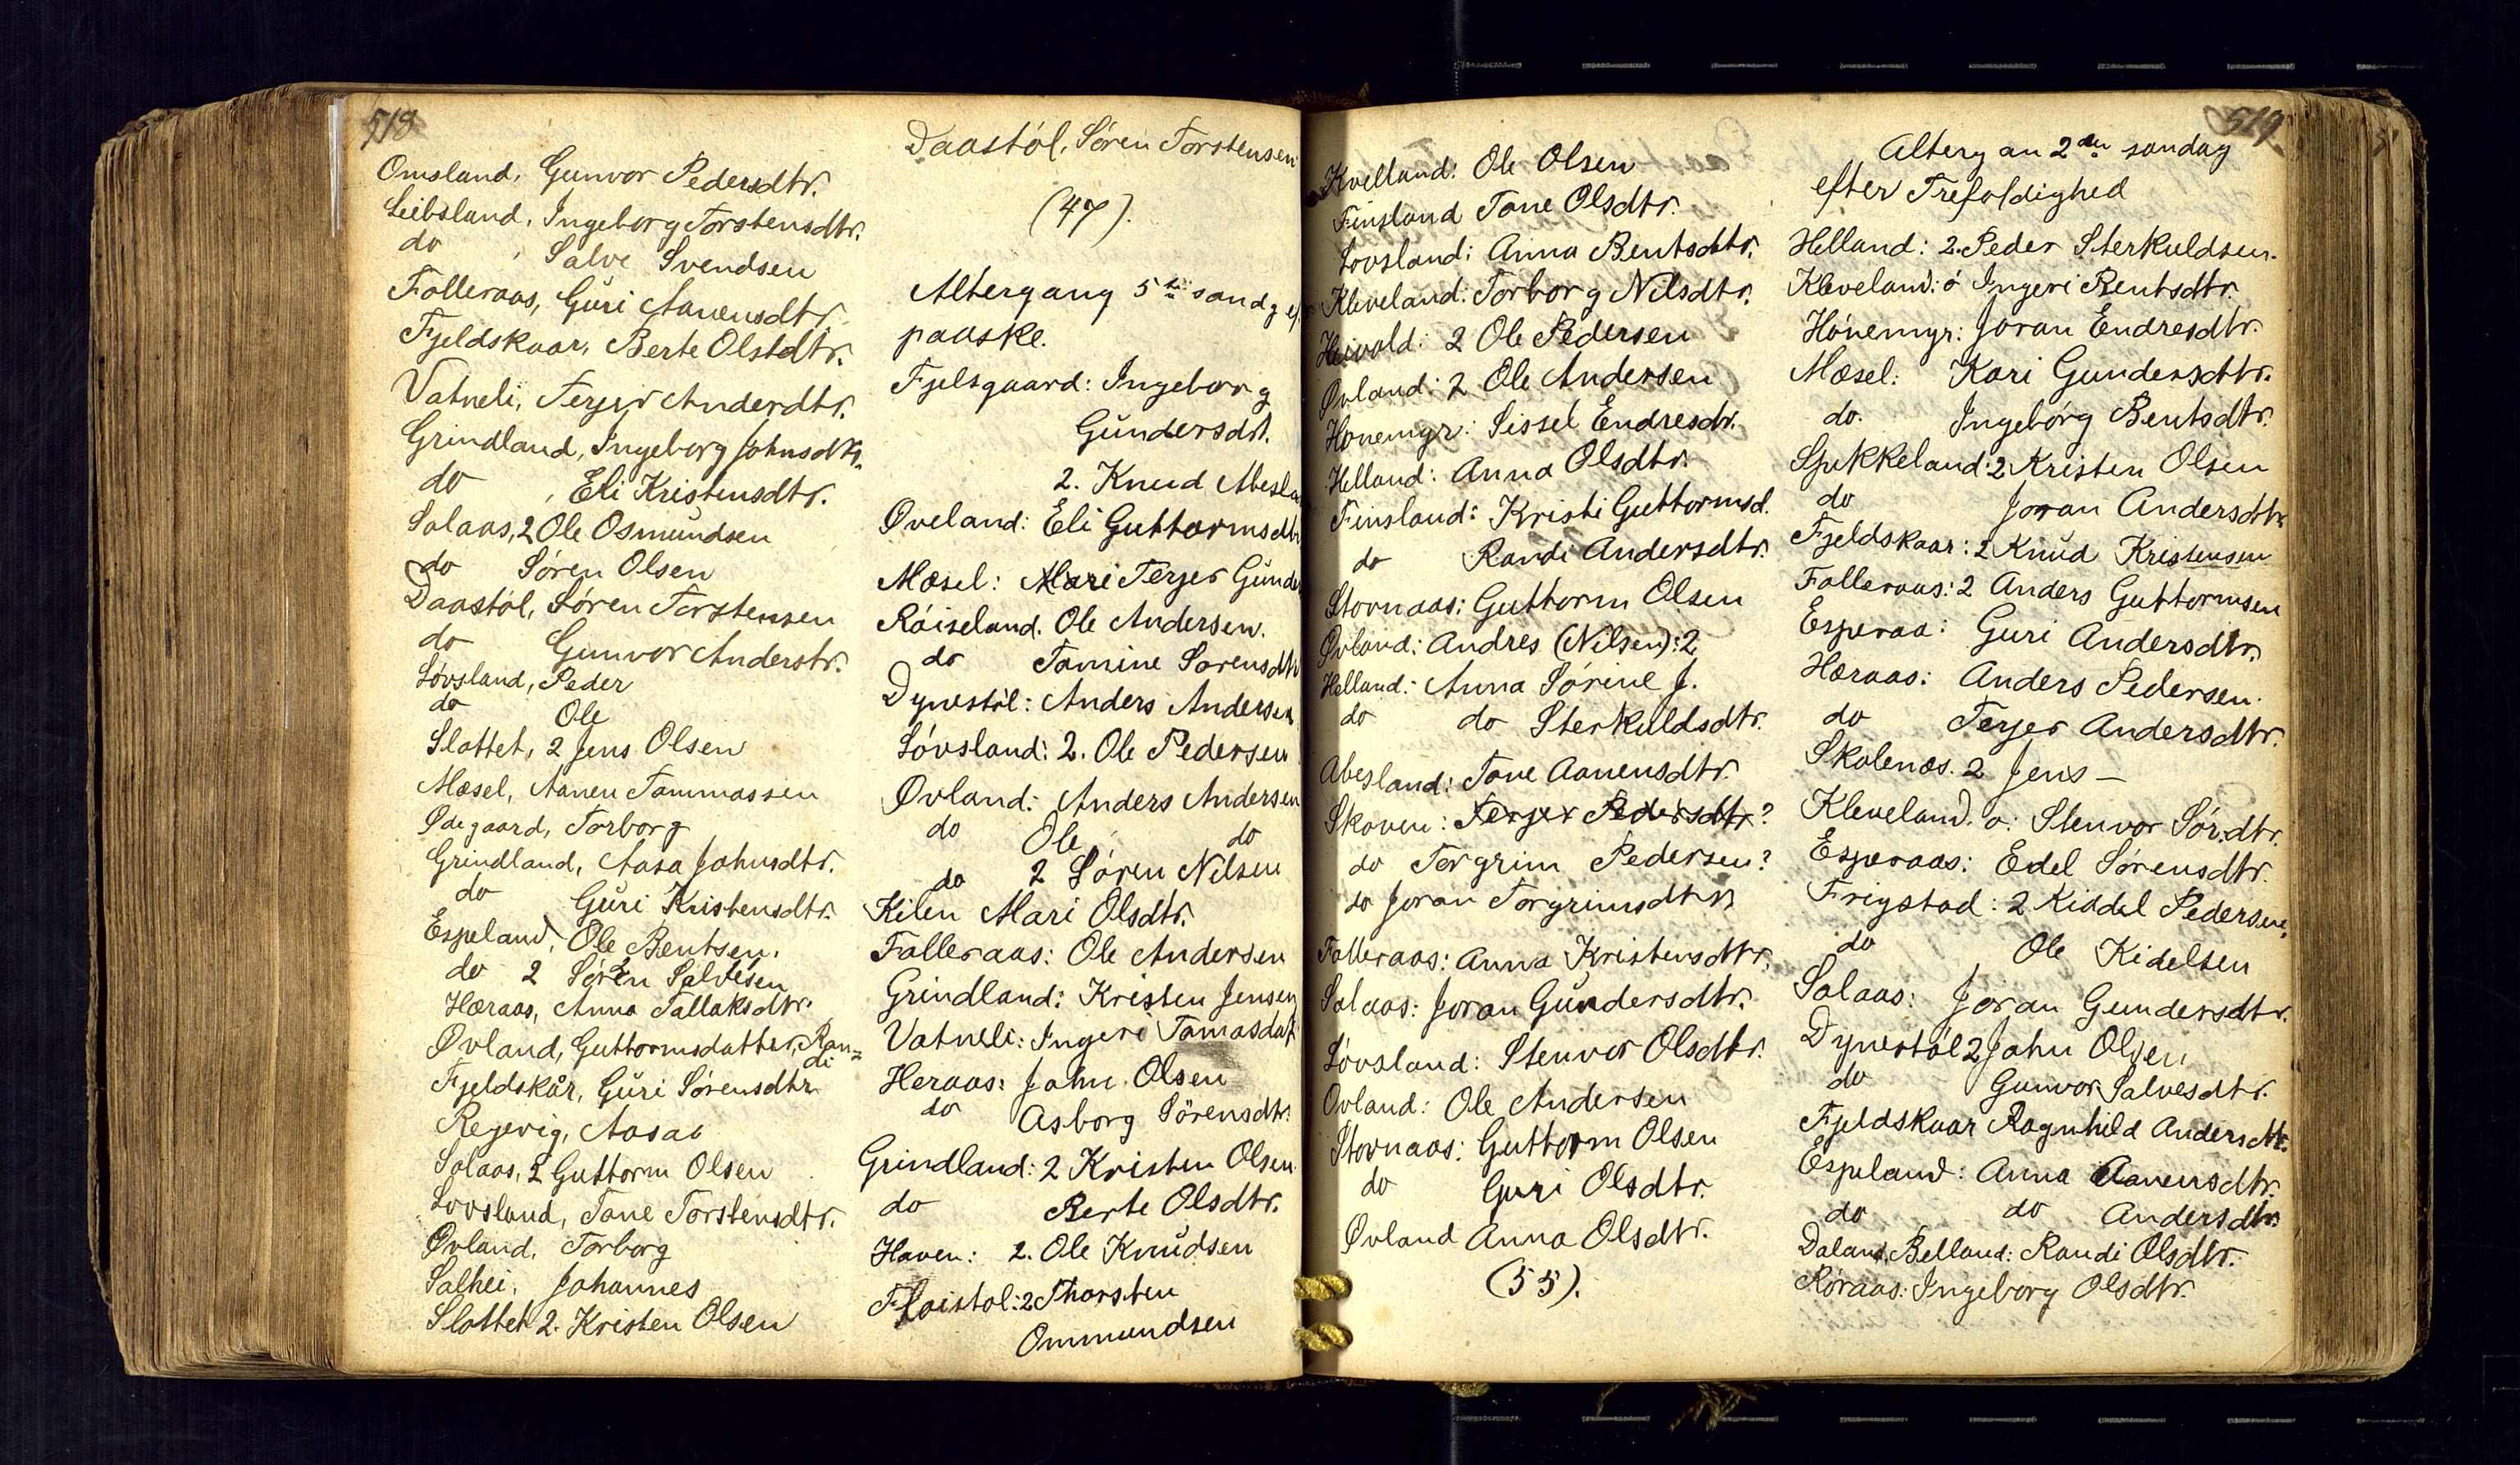 518
Omsland, Gunvor Pedersdtr.
Leibsland, Ingeborg Torstensdtr.
do , Salve Svendsen
Falleraas, Guri Aanensdtr.
Fjeldskaar, Berte Olsdtr.
Vatneli, Terjer Anderdtr.
Grindland, Ingeborg Johnsdtr.
do , Eli Kristensdtr.
Salaas, 2 Ole Osmundsen
do Søren Olsen
Daastöl, Sören Torstensen
do Gunvor Anderstr.
Lövsland, Peder
do Ole
Slottet, 2 Jens Olsen
Mæsel, Aanen Tammassen
Ødegaard, Torborg
Grindland, Aasa Johnsdtr.
do Guri Kristensdtr.
Espeland, Ole Bentsen.
do 2 Søren Salvesen
Hæraas, Anna Tallaksdtr.
Øvland, Guttormsdatter, Ran=
di
Fjeldskår, Guri Sørensdtr
Rejevig, Aasa
Salaas, 2 Guttorm Olsen
Lovsland, Tone Torstensdtr.
Øvland, Torborg
Salhei, Johannes
Slottet 2. Kristen Olsen
Daastöl, Sören Torstensen
(47).
Altergang 5te sondg ef
paaske.
Fjelsgaard: Ingeborg
Gundersdt.
2. Knud Abesla
Øveland: Eli Guttormsdtr
Mæsel: Mari Terjer Gunder
Röiseland. Ole Andersen.
do Tomine Sorensdtr
Dynestöl: Anders Andersen
Lövsland: 2. Ole Pedersen
Øvland: Anders Andersen
do Ole do
do 2 Søren Nilsen
Kilen Mari Olsdtr.
Falleraas: Ole Andersen
Grindland: Kristen Jensen
Vatneli: Ingeri Tomasdat
Heraas: John Olsen
do Asborg Sörensdtr.
Grindland: 2 Kristen Olsen
do Berte Olsdtr.
Haven: 2. Ole Knudsen
Fløistøl: 2 Thorsten
Ommundsen
Kvelland: Ole Olsen
Finsland Tone Olsdtr.
Lovsland: Anna Bentsdtr.
Kleveland: Torborg Nilsdtr.
Heivold: 2 Ole Pedersen
Øvland: 2 Ole Andersen
Honemyr: Sissel Endresdr.
Helland: Anna Olsdtr.
Finsland: Kristi Guttormsd.
do Randi Andersdtr.
Stornaas: Guttorm Olsen
Øvland: Andres (Nilsen): 2
Helland: Anna Sörine J.
do do Sterkuldsdtr.
Abesland: Tone Aanensdtr.
Skoven: Terjer Pedersdtr?
do Torgrim Pedersen?
do Joran Torgrimsdtr
Falleraas: Anna Kristensdtr.
Salaas: Joran Gundersdtr.
Lövsland: Stenvor Olsdtr.
Ovland: Ole Andersen
Stornaas: Guttorm Olsen
do Guri Olsdtr.
Øvland Anna Olsdtr.
(55).
519
Alterg an 2den sondag
efter Trefoldighed
Helland: 2. Peder Sterkuldsen.
Kleveland: ö Ingeri Bentsdtr.
Hönemyr: Joran Endresdtr.
Mæsel: Kari Gundersdtr.
do. Ingeborg Bentsdtr.
Spikkeland: 2 Kristen Olsen
do Joran Andersdtr
Fjeldskaar: 2 Knud Kristensen
Falleraas: 2 Anders Guttormsen
Esperaa: Guri Andersdtr.
Hæraas: Anders Pedersen.
do Terjer Andersdtr.
Skolenæs. 2 Jens –
Kleveland. o: Stenvor Sör.dtr.
Esperaas: Edel Sörensdtr.
Frigstad: 2 Kiddel Pedersen,
do Ole Kidelsen
Salaas: Joran Gundersdtr.
Dynestöl 2 John Olsen
do Gunvor Salvesdtr.
Fjeldskaar Ragnhild Andersdtr.
Espeland: Anna Aanensdtr.
do do Andersdtr.
Daland, Belland: Randi Olsdtr.
Röraas: Ingeborg Olsdtr.